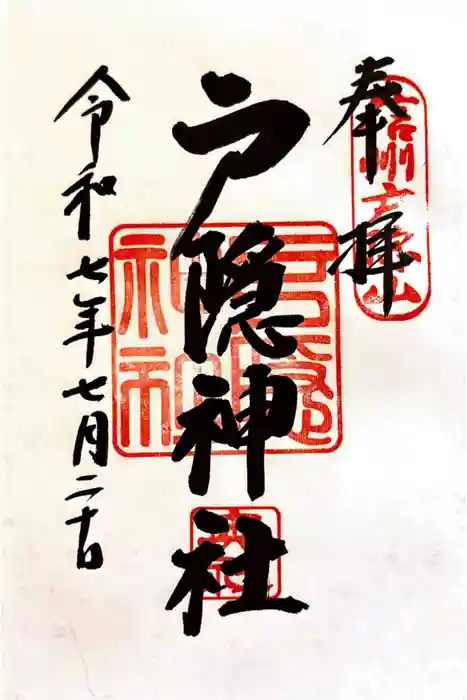 奉拝
信州戸隠山
戸隠神社
戸隠
神社
令和七年七月二十日